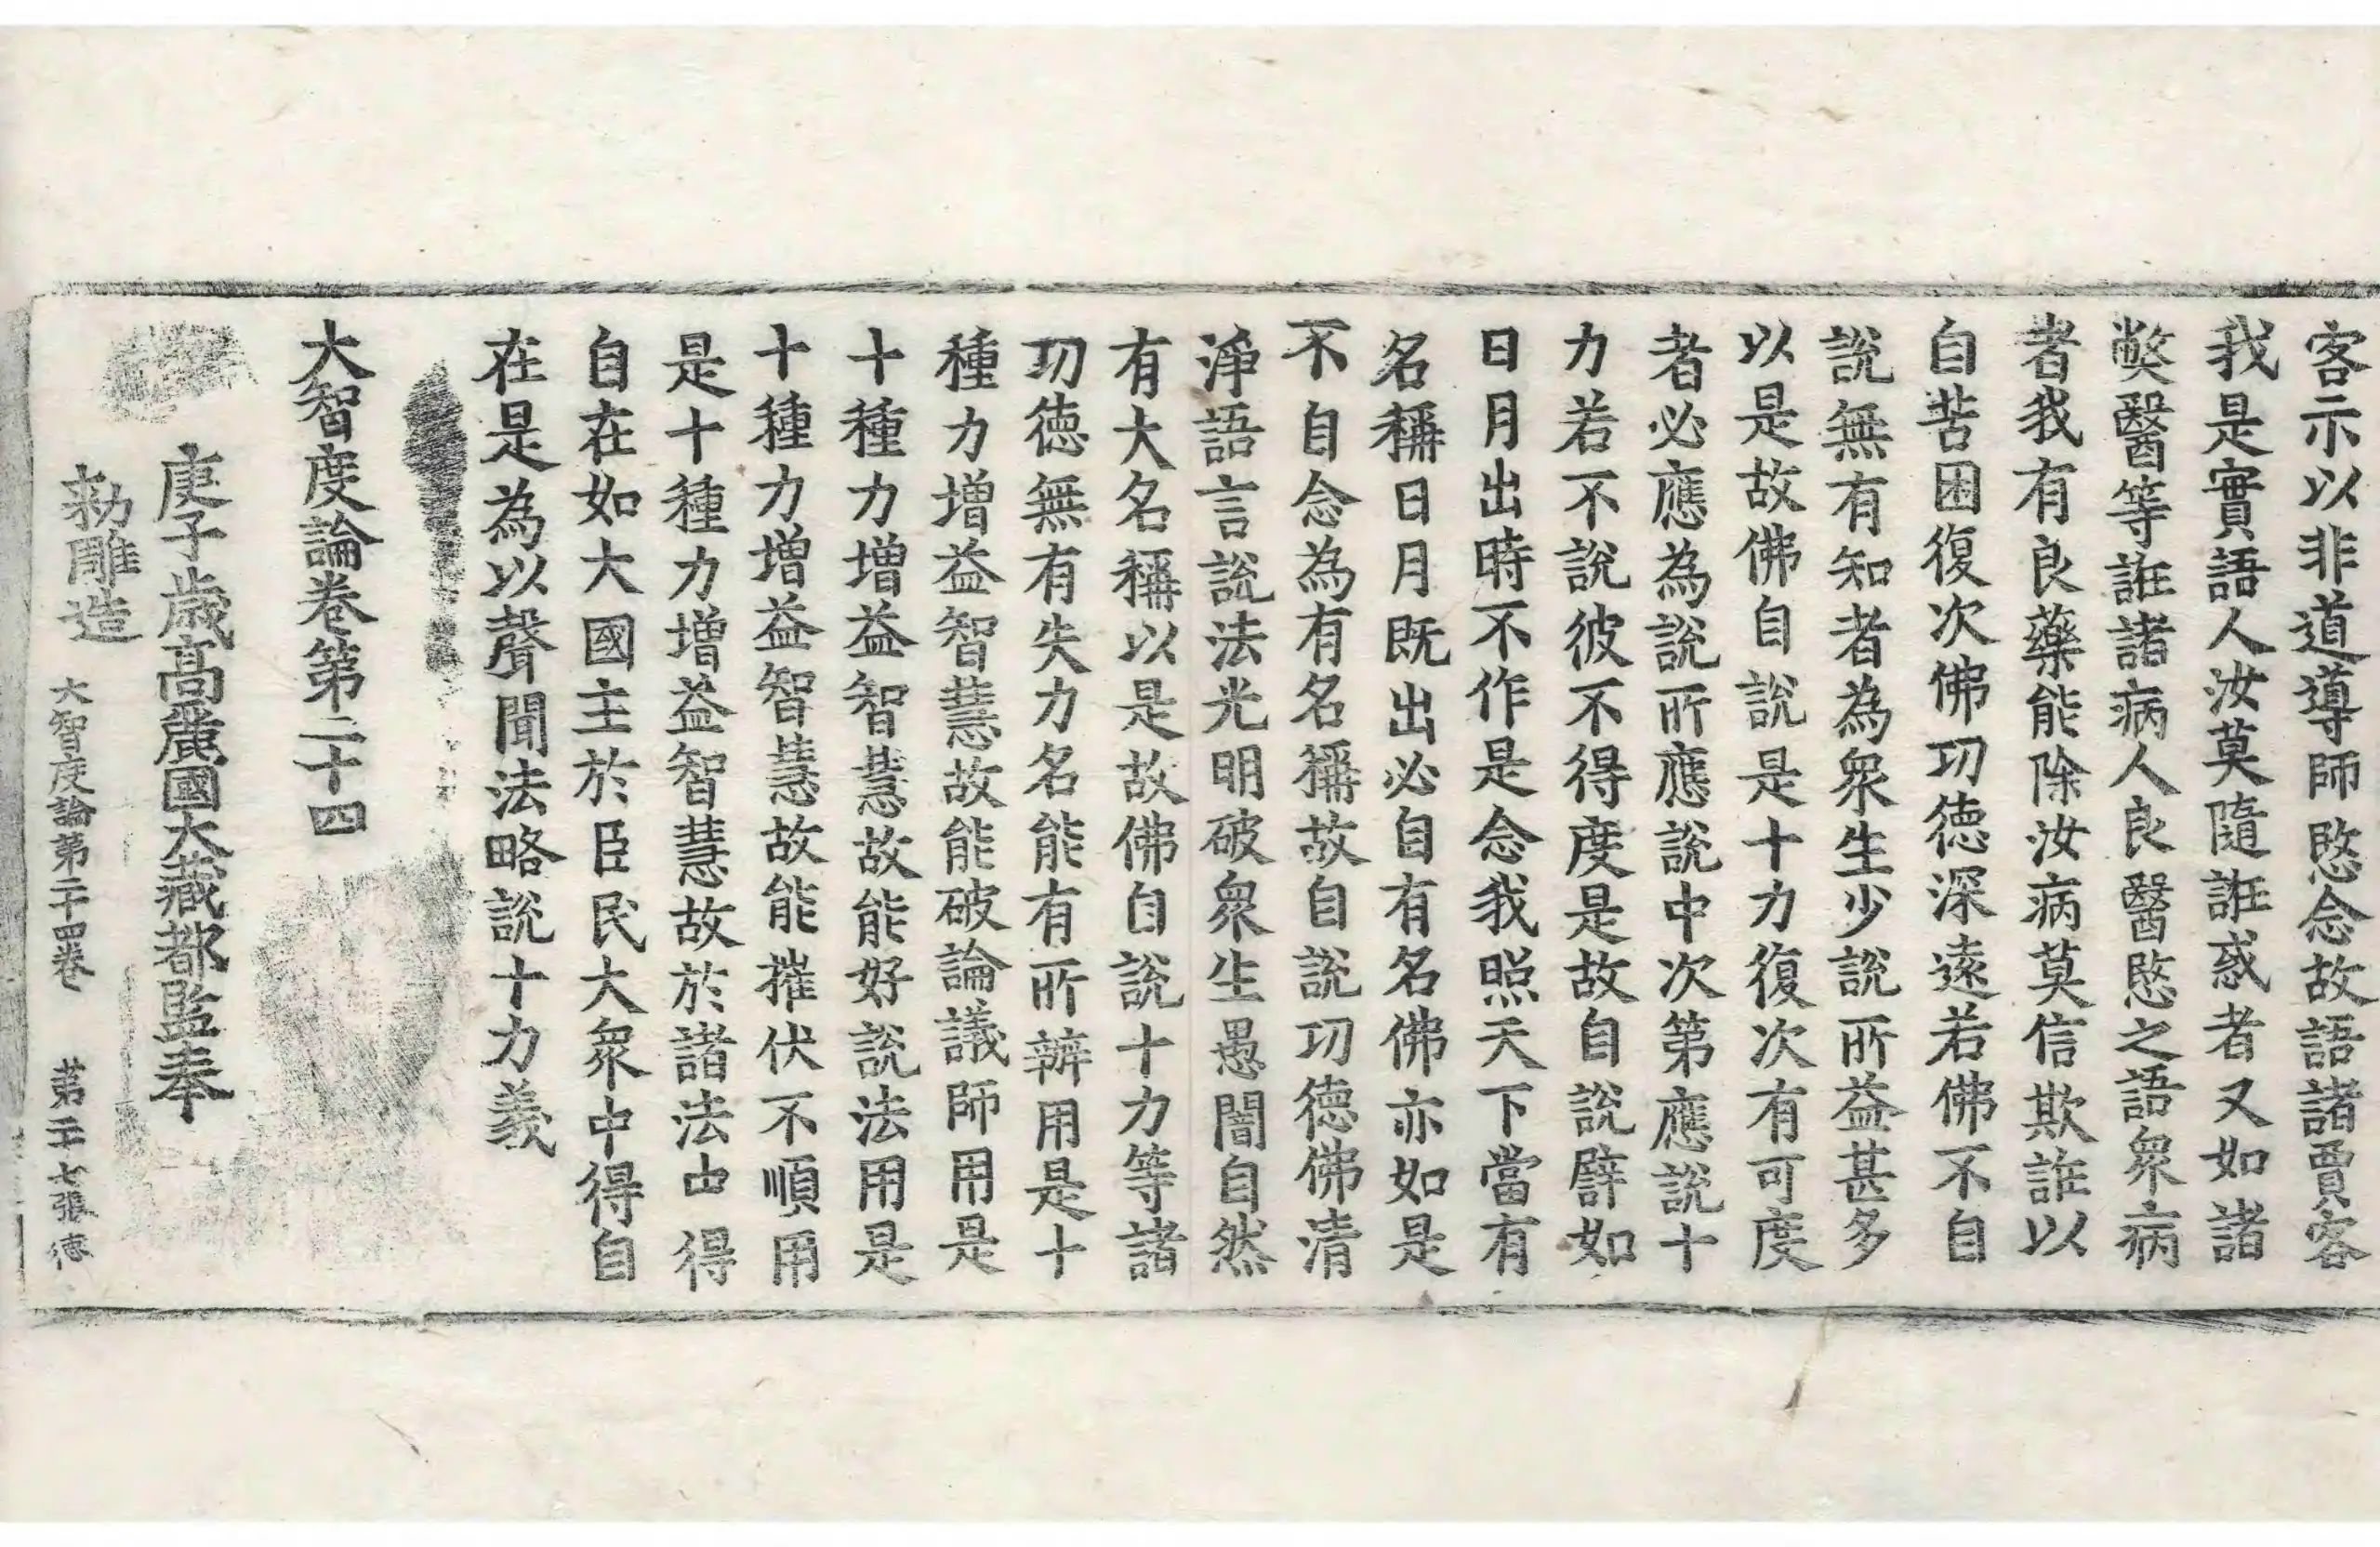 客示以非道導師愍念故語諸賈客
我是實語人汝莫隨誑惑者又如諸
弊醫等誑諸病人良醫愍之語衆病
者我有良藥能除汝病莫信欺誑以
自苦困復次佛功德深遠若佛不自
說無有知者為衆生少說所益甚多
以是故佛自說是十力復次有可度
者必應為說所應說中次第應說十
力若不說彼不得度是故自說譬如
日月出時不作是念我照天下當有
名稱日月既出必自有名佛亦如是
不自念為有名稱故自說功德佛清
淨語言說法光明破衆生愚闇自然
有大名稱以是故佛自說十力等諸
功德無有失力名能有所辨用是十
種力增益智慧故能破論議師用是
十種力增益智慧故能好說法用是
十種力增益智慧故能摧伏不順用
是十種力增益智慧故於諸法中得
自在如大國主於臣民大衆中得自
在是為以聲聞法略說十力義
大智度論卷第二十四
庚子歲高麗國大藏都監奉
勅雕造
大智度論第二十四卷 第二十七張 德